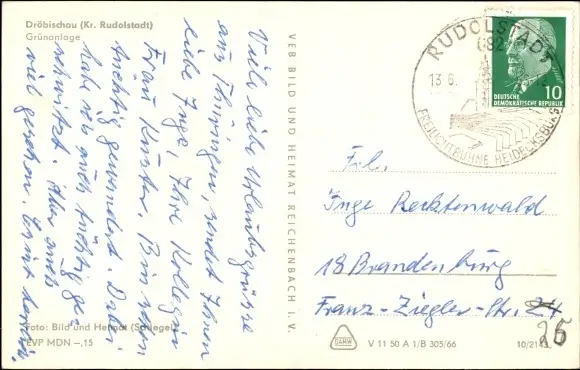 Dröbischau (Kr. Rudolstadt)
Grünanlage
Viele liebe Urlaubsgrüße
aus Thüringen, sendet Ihnen
liebe Inge, Ihre Kollegin
Frau Küster. Bin schon
tüchtig gewandert. Dabei
habe ich auch tüchtig ge-
schwitzt. Aber auch
viel gesehen.
Foto: Bild und Heimat (Schlegel)
EVP MDN –,15
VEB BILD UND HEIMAT REICHENBACH I. V.
RUDOLSTADT
682
13.6.
FREILICHTBÜHNE HEIDECKSBURG
DEUTSCHE
DEMOKRATISCHE REPUBLIK
10
Frl.
Inge Recktenwald
18 Brandenburg
Franz-Ziegler-Str. 24
26
V 11 50 A 1/B 305/66